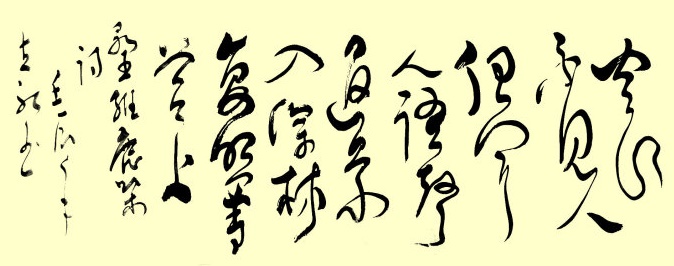 空山
不見人
但聞
人語響
返景
入深林
復照青
苔上
王維鹿柴
詩